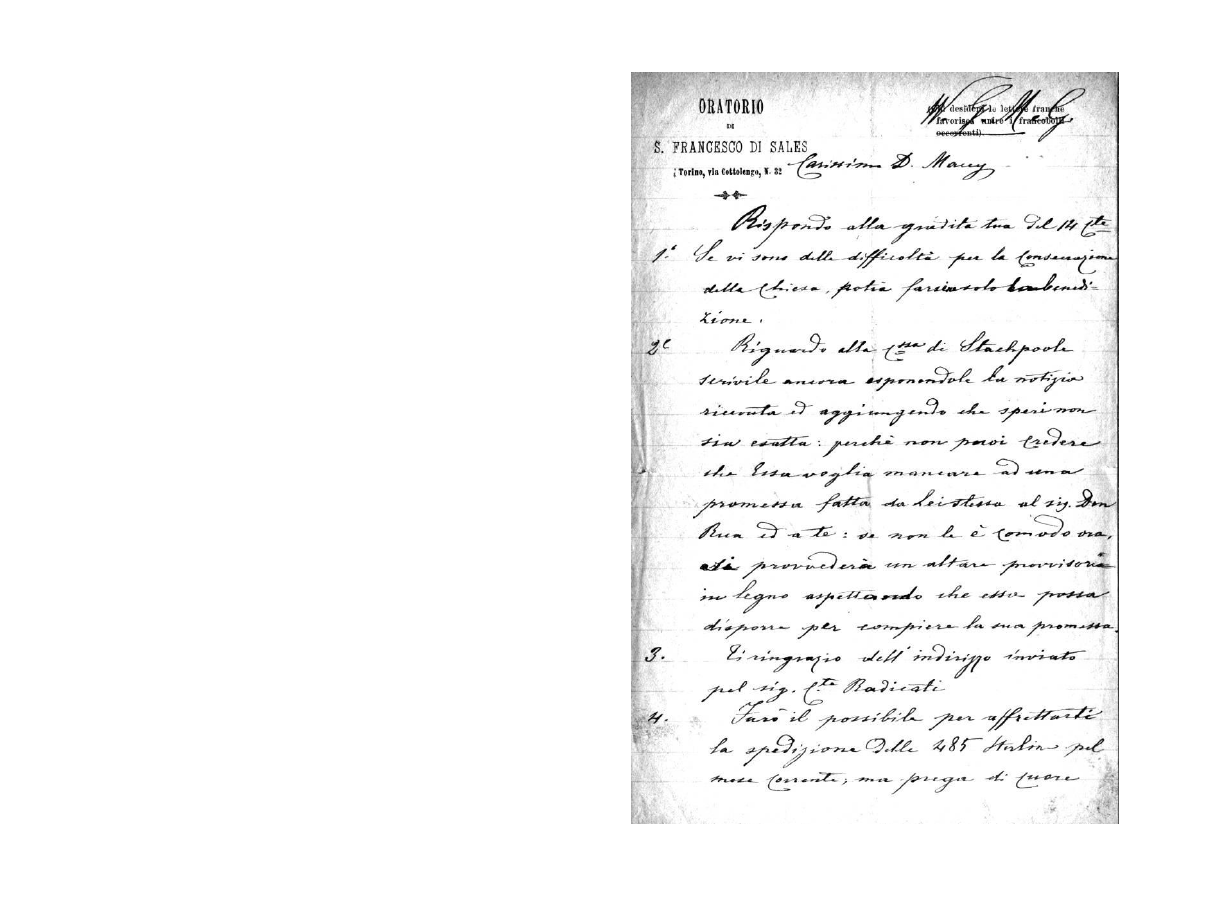 ORATORIO
DI
S. FRANCESCO DI SALES
Torino, via Cottolengo, N. 32
desidera le lettere franche
favorisca unire i francobolli
occorrenti).
Carissimo D. Macey
Rispondo alla gradita tua del 14 cte
1.° Se vi sono delle difficoltà per la Consecrazione
della Chiesa, potrà farsi solo la benedi-
zione.
2° Riguardo alla Cssa di Stackpoole
scrivile ancora esponendole la notizia
ricevuta ed aggiungendo che speri non
sia esatta: perchè non puoi credere
che Essa voglia mancare ad una
promessa fatta da Lei stessa al sig. Don
Rua ed a te: se non le è comodo ora,
si provvederà un altare provvisorio
in legno aspettando che essa possa
disporre per compiere la sua promessa.
3. Ti ringrazio dell' indirizzo inviato
pel sig. Cte Radicati
4. Farò il possibile per affrettarti
la spedizione delle 485 Sterline pel
mese corrente; ma prega di cuore